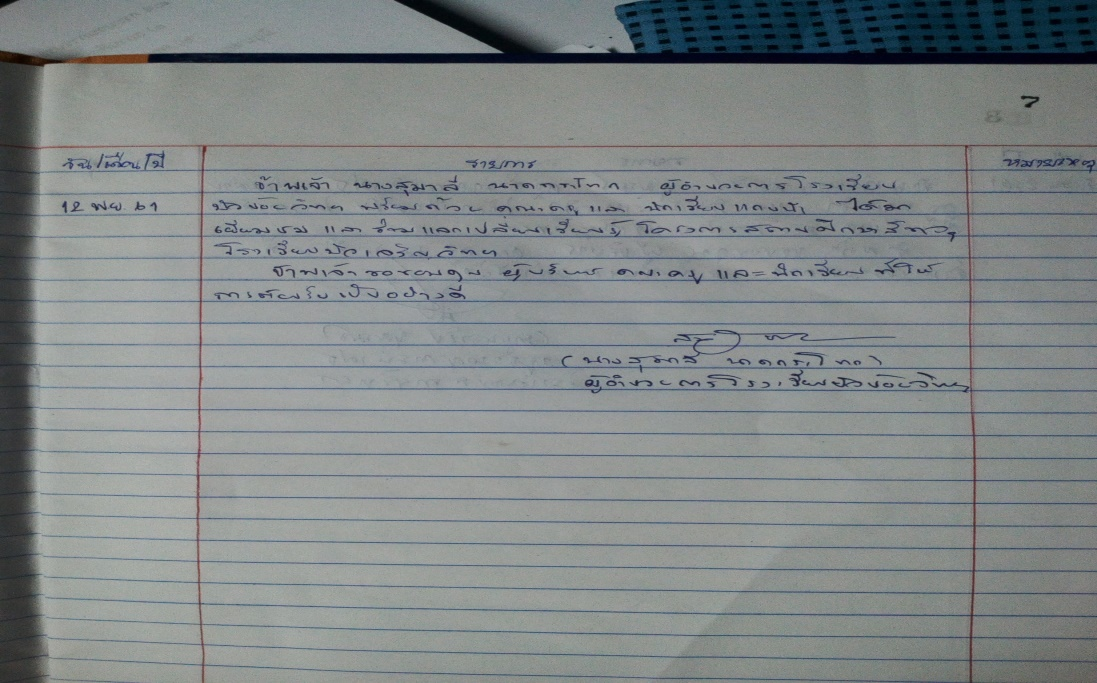 7
วัน/เดือน/ปี รายการ หมายเหตุ
ข้าพเจ้า นางสุมาลี ผู้อำนวยการโรงเรียน
12 พย. 61 พร้อมด้วย คณะครู และ นักเรียนแกนนำ ได้มา
เยี่ยมชม และ ร่วมแลกเปลี่ยนเรียนรู้ โครงการสถานศึกษาสีขาว
โรงเรียนบัวเจริญวิทยา
ข้าพเจ้าขอขอบคุณ ผู้บริหาร คณะครู และนักเรียน ที่ให้
การต้อนรับเป็นอย่างดี
(นางสุมาลี
ผู้อำนวยการโรงเรียน